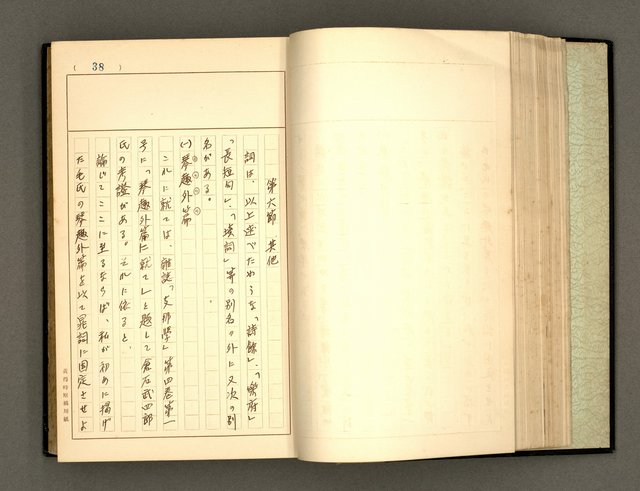 ( 38 )
第六節 其他
詞は、以上述べたやうな「詩餘」、「樂府」
「長短句」、「填詞」等の別名の外に又次の別
名がある。
(一)琴趣外篇
これに就ては、雜誌「支那學」第四卷第一
号に「琴趣外篇に就て」と題して倉石武四郎
氏の考證がある。それに依ると、
論じてここに至るならば、私が初めに掲げ
た毛氏の琴趣外篇を以て晁詞に固定させよ
黃得時原稿用紙